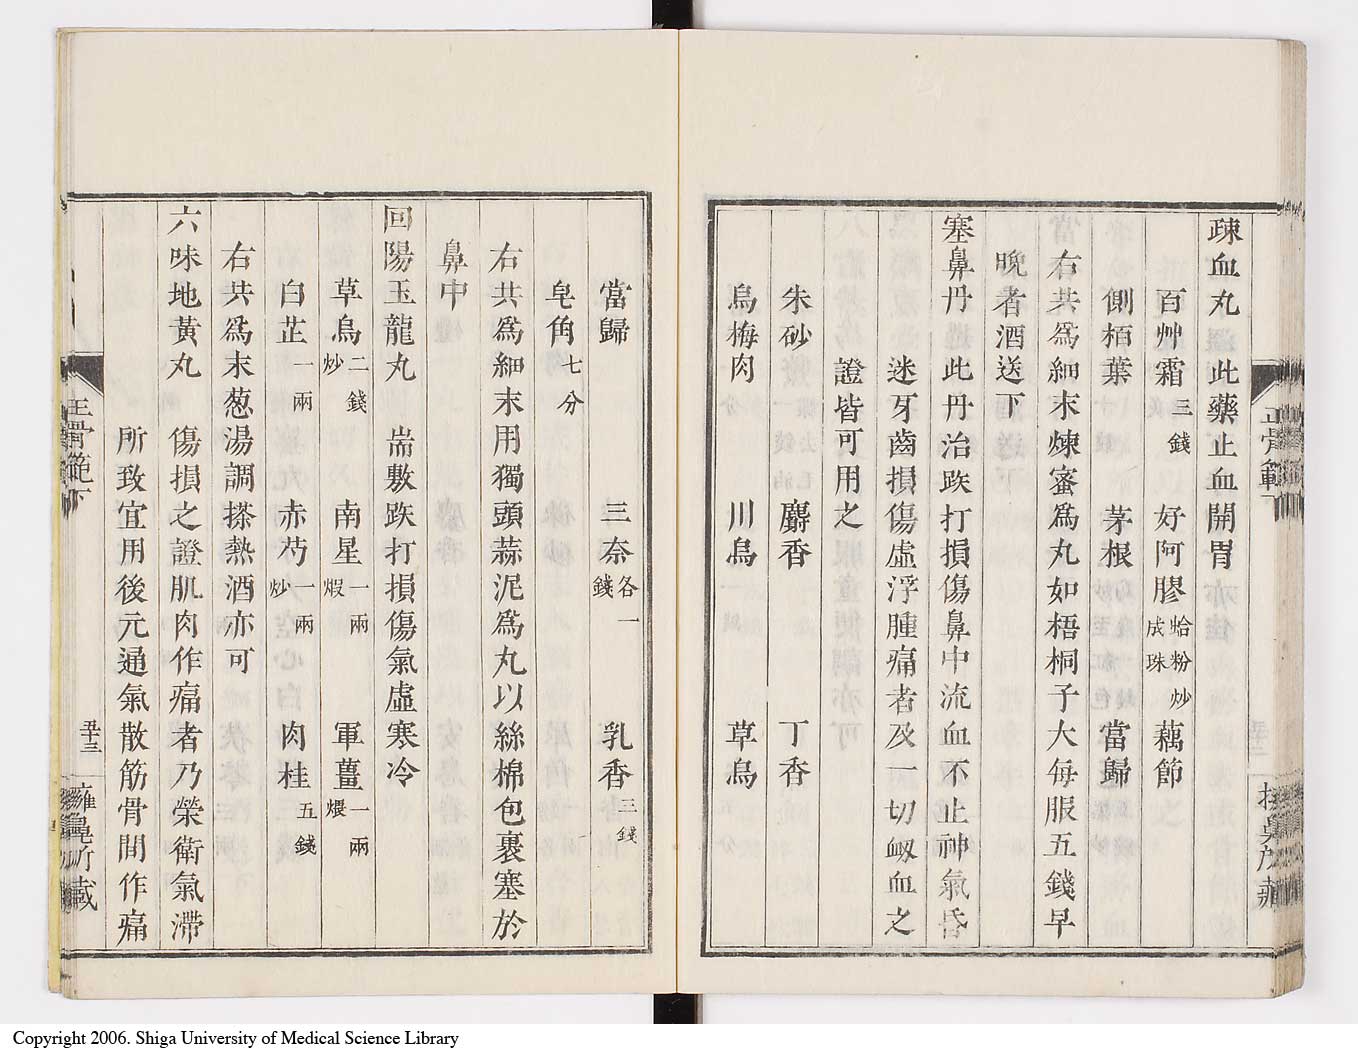 疎血丸 此藥止血開胃
百艸霜三錢 好阿膠蛤粉炒成珠 藕節
側栢葉 茅根 當歸
右共爲細末煉蜜爲丸如梧桐子大每服五錢早
晩者酒送下
塞鼻丹 此丹治跌打損傷鼻中流血不止神氣昏
迷牙齒損傷虛浮腫痛者及一切衂血之
證皆可用之
朱砂 麝香 丁香
烏梅肉 川烏 草烏
當歸 三奈各一錢 乳香三錢
皂角七分
右共爲細末用獨頭蒜泥爲丸以絲棉包裹塞於
鼻中
回陽玉龍丸 耑敷跌打損傷氣虛寒冷
草烏二錢炒 南星一兩煆 軍薑一兩煨
白芷一兩 赤芍一兩炒 肉桂五錢
右共爲末葱湯調搽熱酒亦可
六味地黃丸 傷損之證肌肉作痛者乃榮衛氣滯
所致宜用後元通氣散筋骨間作痛
正骨範下
五十三
Copyright 2006. Shiga University of Medical Science Library